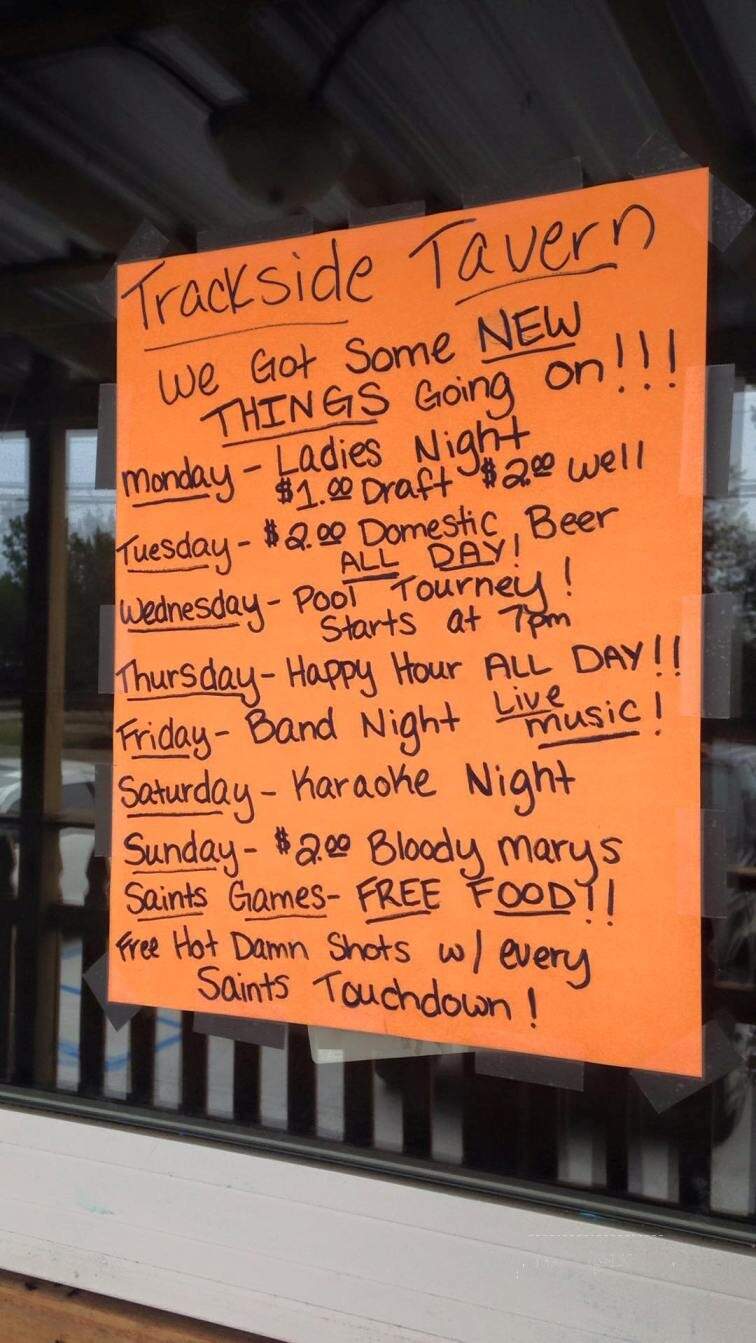 Trackside Tavern
We Got Some NEW
THINGS Going on!!!
Monday - Ladies Night
$1.00 Draft $2.00 well
Tuesday - $2.00 Domestic Beer
ALL DAY!
Wednesday - Pool Tourney!
Starts at 7pm
Thursday - Happy Hour ALL DAY!!
Friday - Band Night Live
music!
Saturday - Karaoke Night
Sunday - $2.00 Bloody Marys
Saints Games - FREE FOOD!!
Free Hot Damn Shots w/ every
Saints Touchdown!